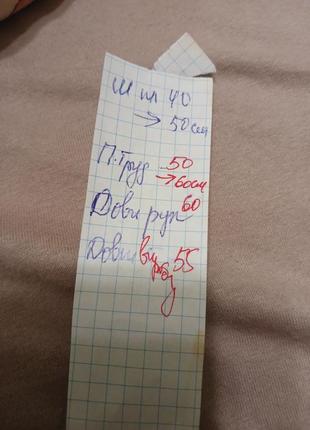 Ш пл 40
→ 50 см
П.груд 50
→ 60см
Довж рук 60
Довж виробу 55